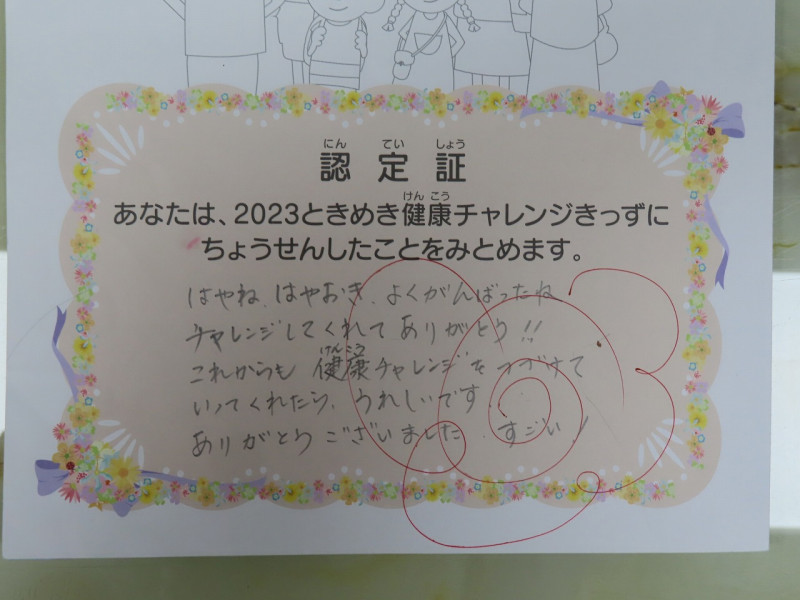 にん てい しょう
認定証
けん こう
あなたは、2023ときめき健康チャレンジきっずに
ちょうせんしたことをみとめます。
はやね、はやおき、よくがんばったね
チャレンジしてくれてありがとう!!
けんこう
これからも健康チャレンジをつづけて
いってくれたら、うれしいです
ありがとうございました。すごい!